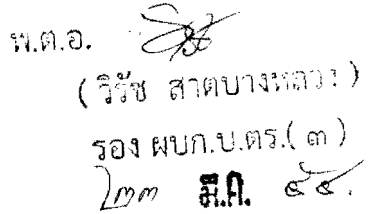 พ.ต.อ.
( วิรัช สาตบางหลวง )
รอง ผบก.บ.ตร.( ๓ )
๒๓ มี.ค. ๔๕.